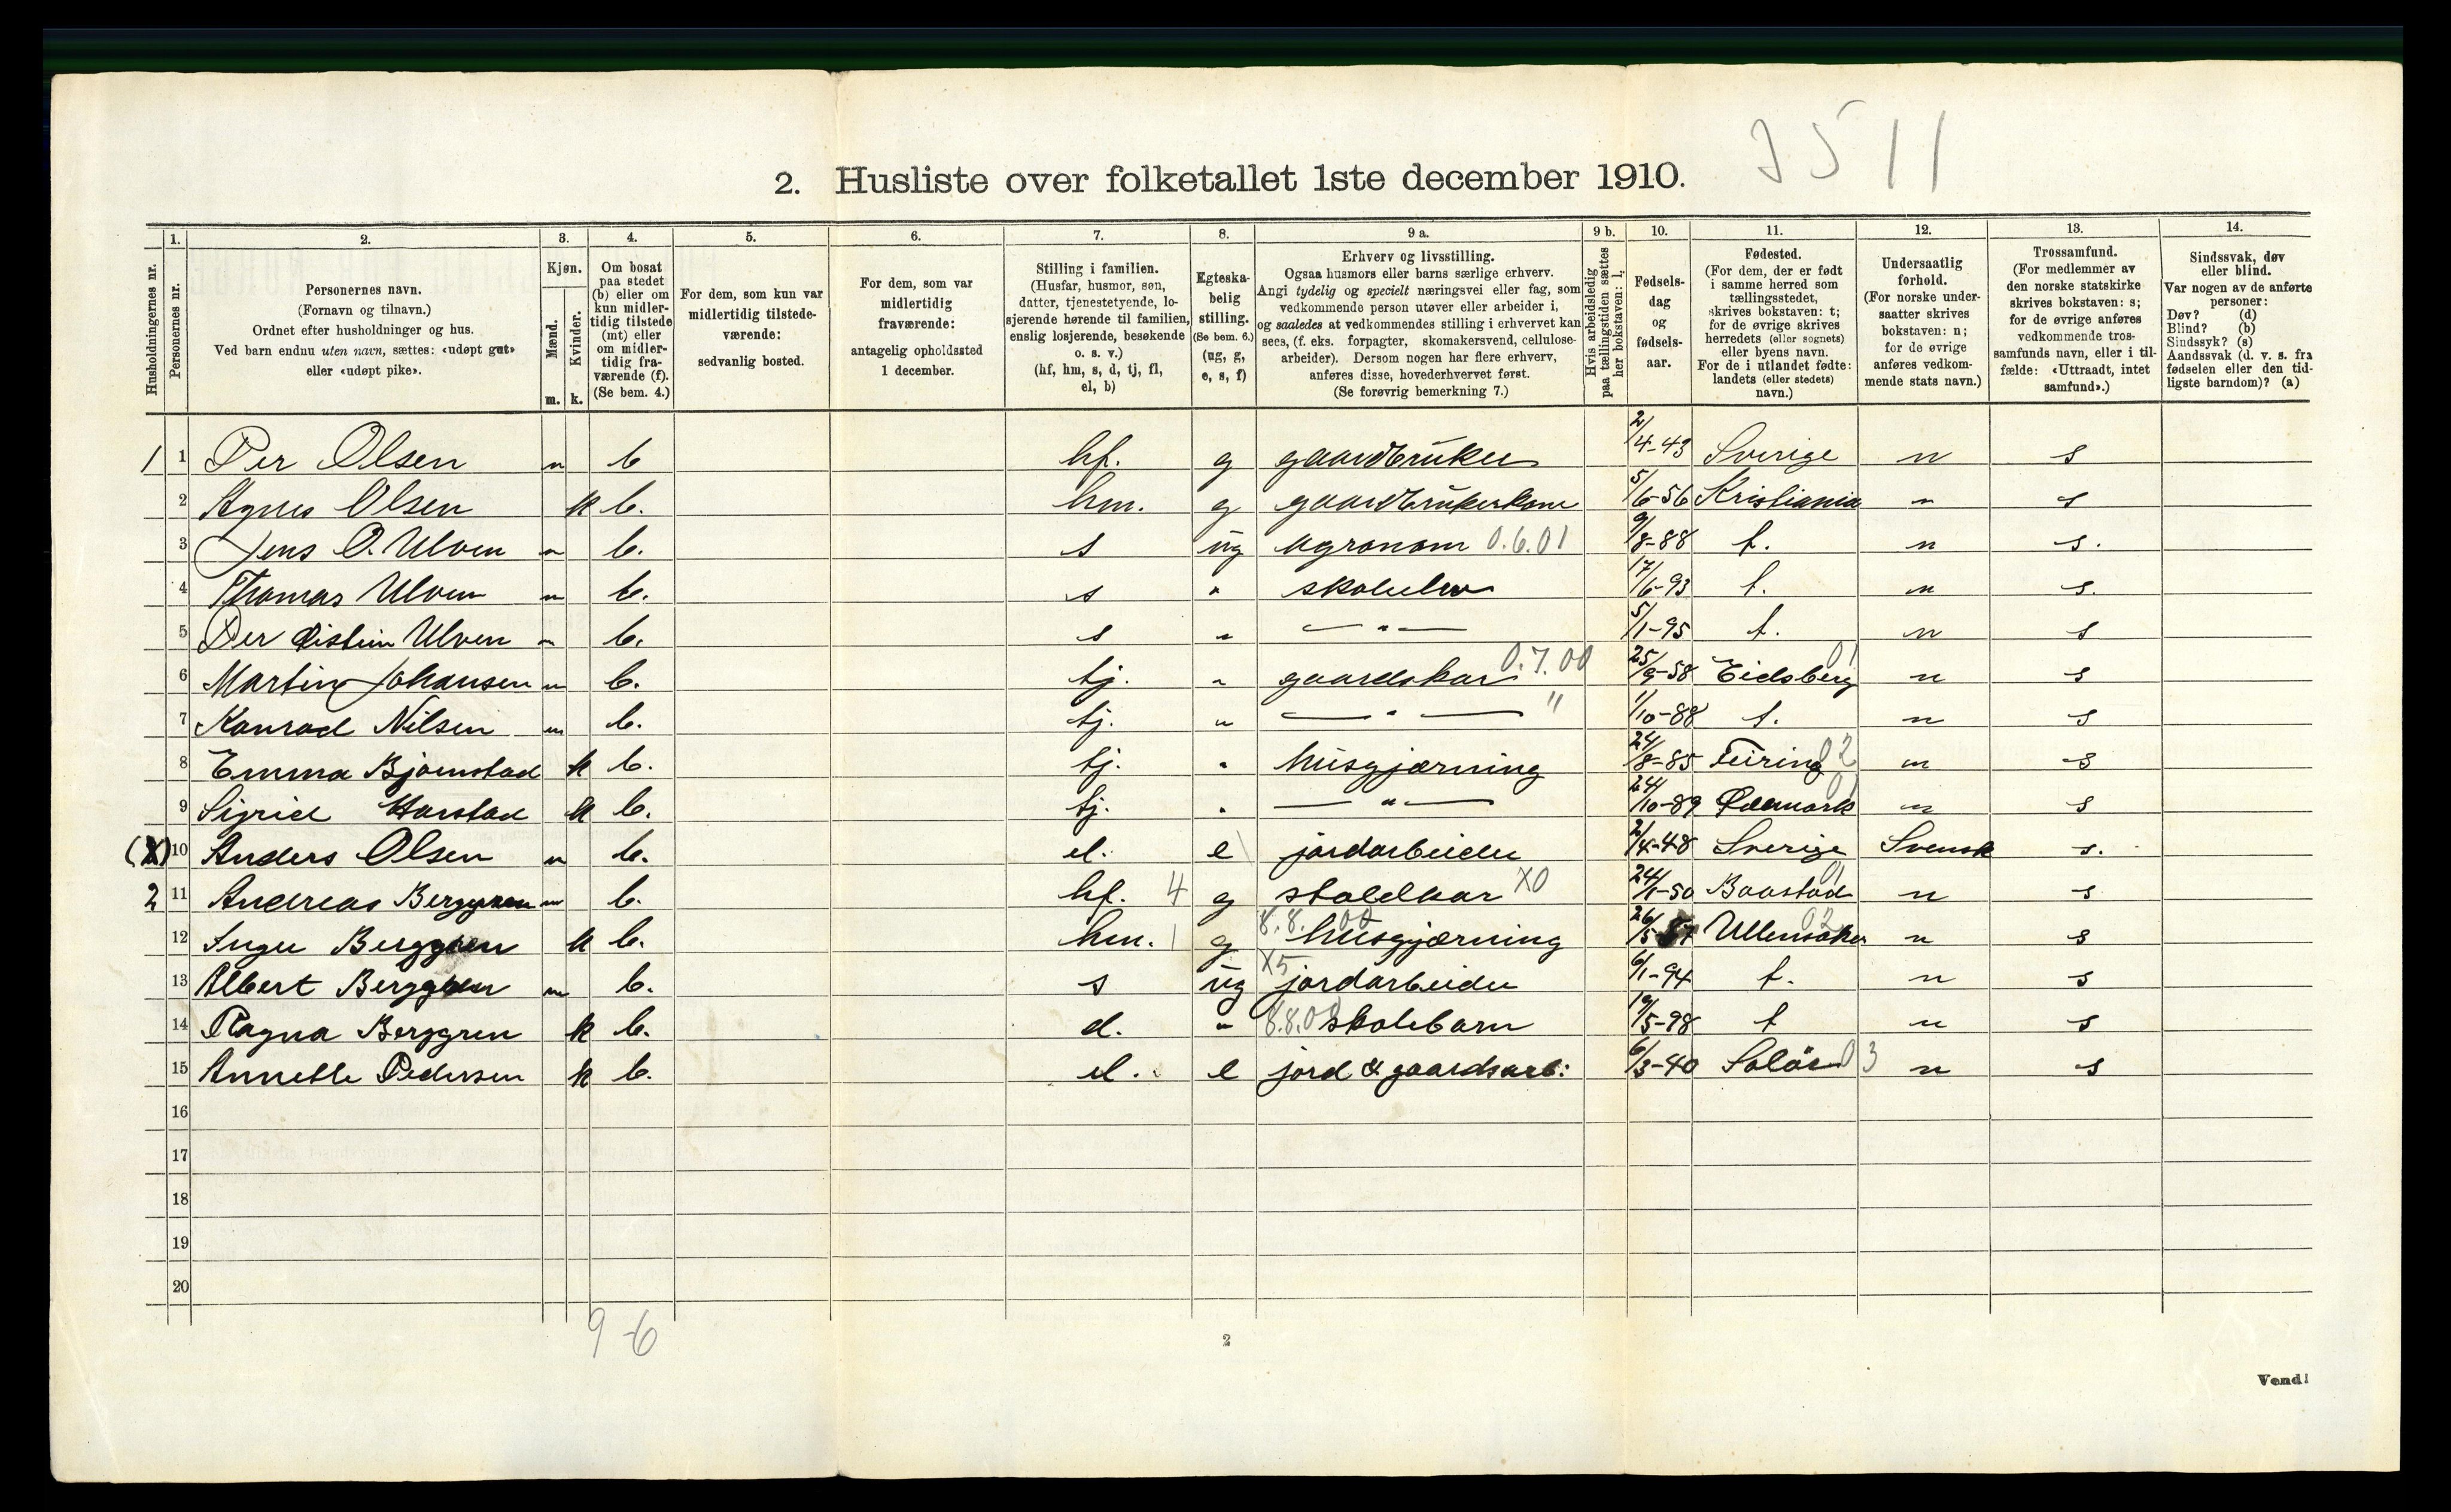 3511
2. Husliste over folketallet 1ste december 1910.
1. 2. 3. 4. 5. 6. 7. 8. 9 a. 9 b. 10. 11. 12. 13. 14.
Husholdningernes nr.
Personernes nr.
Personernes navn.
(Fornavn og tilnavn.)
Ordnet efter husholdninger og hus.
Ved barn endnu uten navn, sættes: «udøpt gut»
eller «udøpt pike».
Kjøn.
Mænd.
Kvinder.
m. k.
Om bosat
paa stedet
(b) eller om
kun midler-
tidig tilstede
(mt) eller
om midler-
tidig fra-
værende (f).
(Se bem. 4.)
For dem, som kun var
midlertidig tilstede-
værende:
sedvanlig bosted.
For dem, som var
midlertidig
fraværende:
antagelig opholdssted
1 december.
Stilling i familien.
(Husfar, husmor, søn,
datter, tjenestetyende, lo-
sjerende hørende til familien,
enslig losjerende, besøkende
o. s. v.)
(hf, hm, s, d, tj, fl,
el, b)
Egteska-
belig
stilling.
(Se bem. 6.)
(ug, g,
e, s, f)
Erhverv og livsstilling.
Ogsaa husmors eller barns særlige erhverv.
Angi tydelig og specielt næringsvei eller fag, som
vedkommende person utøver eller arbeider i,
og saaledes at vedkommendes stilling i erhvervet kan
sees, (f. eks. forpagter, skomakersvend, cellulose-
arbeider). Dersom nogen har flere erhverv,
anføres disse, hovederhvervet først.
(Se forøvrig bemerkning 7.)
Hvis arbeidsledig
paa tællingstiden sættes
her bokstaven: l.
Fødsels-
dag
og
fødsels-
aar.
Fødested.
(For dem, der er født
i samme herred som
tællingsstedet,
skrives bokstaven: t;
for de øvrige skrives
herredets (eller sognets)
eller byens navn.
For de i utlandet fødte:
landets (eller stedets)
navn.)
Undersaatlig
forhold.
(For norske under-
saatter skrives
bokstaven: n;
for de øvrige
anføres vedkom-
mende stats navn.)
Trossamfund.
(For medlemmer av
den norske statskirke
skrives bokstaven: s;
for de øvrige anføres
vedkommende tros-
samfunds navn, eller i til-
fælde: «Uttraadt, intet
samfund».)
Sindssvak, døv
eller blind.
Var nogen av de anførte
personer:
Døv? (d)
Blind? (b)
Sindssyk? (s)
Aandssvak (d. v. s. fra
fødselen eller den tid-
ligste barndom)? (a)
1 1 Per Olsen m b hf. g gaardbruker 2/4-43 Sverige n s
2 Agnes Olsen k b. hm. g gaardbrukerkone 5/6-56 Kristiania n s
3 Jens O. Ulven m b. s ug agronom 0.6.01 9/8-88 t. n s.
4 Thomas Ulven m b. s " skoleelev 17/6-93 t. n s.
5 Per Øistein Ulven m b. s " — " — 5/1-95 t. n s
6 Martin Johansen m b. tj. " gaardskar 0.7.00 25/9-58 Eidsberg 01 n s
7 Konrad Nilsen m b. tj. " — " — " 1/10-88 t. n s
8 Emma Bjørnstad k b. tj. " husgjærning 24/8-85 Feiring 02 n s
9 Sigrid Harstad k b. tj. " — " — 24/10-89 Ødemark 01 n s
(X) 10 Anders Olsen m b. el. e jordarbeider 2/4-48 Sverige Svensk s.
2 11 Andreas Berggren m b. hf. 4 g staldkar X0 24/1-50 Baastad 01 n s
12 Inga Berggren k b. hm. 1 g 8.8.00 husgjærning 26/5-57 Ullensaker 02 n s
13 Albert Berggren m b. s ug X5 jordarbeider 6/1-94 t. n s
14 Ragna Berggren k b. d. " 8.8.01 skolebarn 19/5-98 t n s
15 Annette Pedersen k b. el. e jord & gaardsarb: 6/3-40 Solør 03 n s
16
17
18
19
20
9-6
2
Vend!